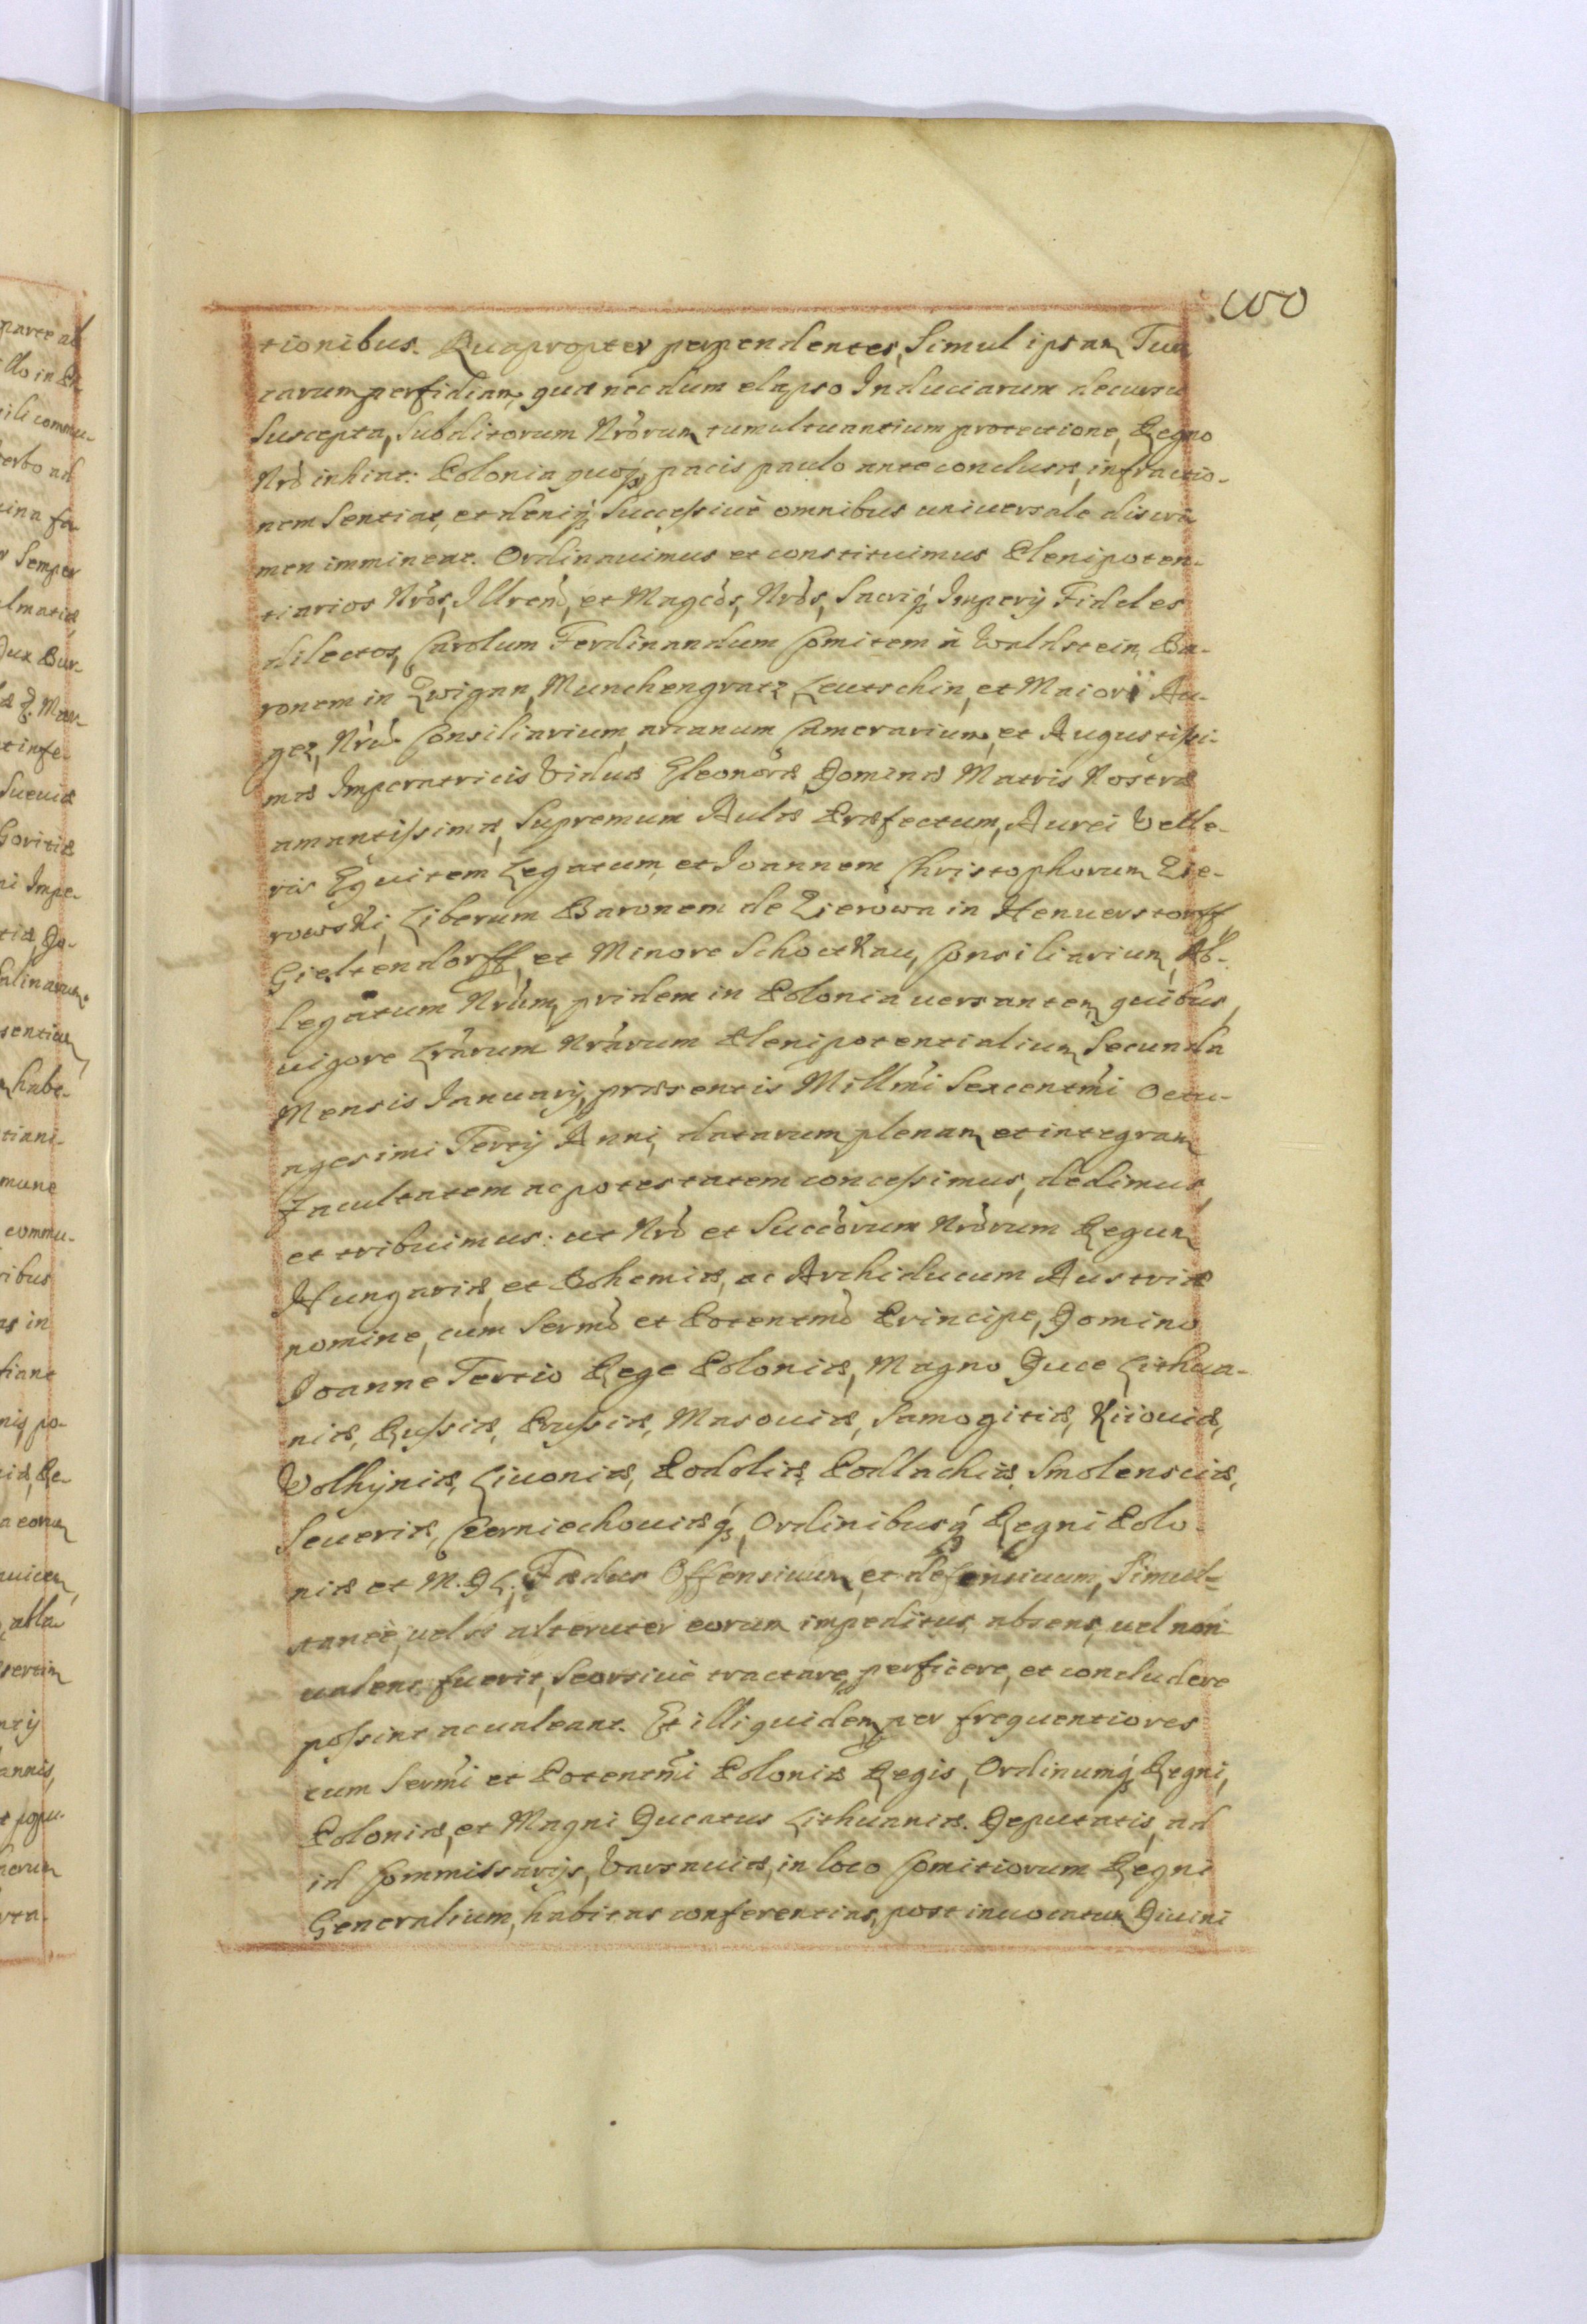 tionibus. Quapropter perpendentes, Simul ipsam Tur
carum perfidiam, quæ necdum elapso Induciarum decursu
Suscepta, Subditorum Nrõrum tumultuantium protectione, Regno
Nrõ inhiat: Polonia quoq, pacis paulo ante conclusæ, infractio-
nem Sentiat, et deniq Successiuè omnibus uniuersale discri
men immineat. Ordinauimus et constituimus Plenipoten-
tiarios Nrõs, et Magcõs, Nrõs, Sacriq Imperij Fideles
dilectos, Carolum Ferdinandum Comitem à Waldstein, Ba-
ronem in Zwigan, Munchengratz, Leutschin, et Maiori Au-
gez, Nrũ Consiliarium, arcanum Camerarium, et Augustissi-
mæ Imperatricis Viduæ Eleonoræ Dominæ Matris Nostræ
amantissimæ, Supremum Aulæ Præfectum, Aurei Velle-
ris Equitem Legatum, et Joannem Christophorum Zie-
rowski, Liberum Baronem de Zierowa in Henuerstorff
Gieltendorff, et Minore Schoctkau, Consiliarium, Ab-
legatum Nrũm, pridem in Polonia uersantem, quibus,
uigore Lrãrum Nrãrum Plenipotentialium, Secunda
Mensis Januarij, præsentis Millmi Sexcentmi Octu-
agesimi Tertij Anni, datarum, plenam et integram
Facultatem ac potestatem concessimus, dedimus,
et tribuimus: ut Nrõ et Succõrum Nrõrum Regum
Hungariæ, et Bohemiæ, ac Archiducum Austriæ
nomine, cum Sermõ et Potentmõ Principe, Domino
Joanne Tertio Rege Poloniæ, Magno Duce Lithua-
niæ, Russiæ, Prussiæ, Masouiæ, Samogitiæ, Kiiouiæ,
Volhyniæ, Liuoniæ, Podoliæ, Podlachiæ, Smolensciæ,
Seueriæ, Czerniechouiæq, Ordinibusq Regni Polo
niæ et M. D L. Fædus Offensiuum, et defensiuum, Simul-
taneè, uel si alteruter eorum impeditus, absens, uel non
ualens fuerit, Seorsiuè tractare, perficere, et concludere
possint ac ualeant. Et illi quidem, per frequentiores
cum Sermi et Potentmi Poloniæ Regis, Ordinumq Regni,
Poloniæ, et Magni Ducatus Lithuaniæ. Deputatis, ad
id Commissarijs, Varsauiæ, in loco Comitiorum Regni
Generalium, habitas conferentias, post inuocatum Diuini